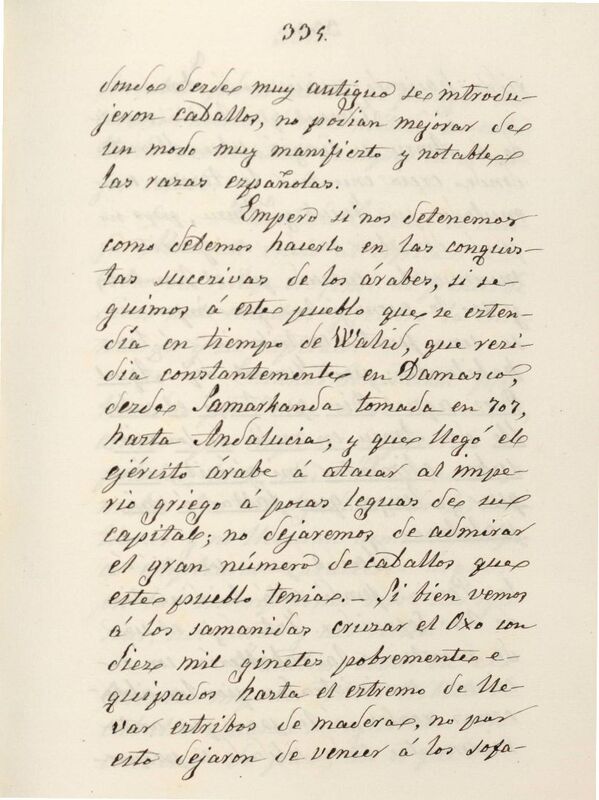 335.
donde desde muy antiguo se introdu-
jeron caballos, no podian mejorar de
un modo muy manifiesto y notable
las razas españolas.
Empero si nos detenemos
como debemos hacerlo en las conquis-
tas sucesivas de los árabes, si se-
guimos á este pueblo que se esten-
día en tiempo de Walid, que resi-
dia constantemente en Damasco,
desde Samarkanda tomada en 707,
hasta Andalucia, y que llegó el
ejército árabe á atacar al impe-
rio griego á pocas leguas de su
capital; no dejaremos de admirar
el gran número de caballos que
este pueblo tenia. - Si bien vemos
á los samanidas cruzar el Oxo con
diez mil ginetes pobremente e-
quipados hasta el estremo de lle-
var estribos de madera, no por
esto dejaron de vencer á los sofa-